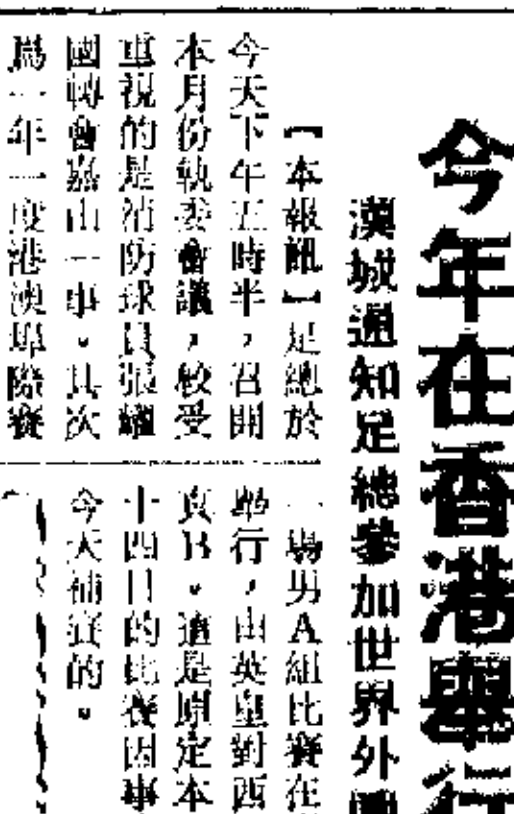 今年在香港舉行
漢城通知足總參加世界外圍
【本報訊】足總於
今天下午五時半，召開
本月份執委會議，較受
重視的是消防球員張耀
國轉會嘉山一事。其次
爲一年一度港澳埠際賽
一場男A組比賽在
舉行，由英皇對西
真B。這是原定本
十四日的比賽因事
今天補賽的。